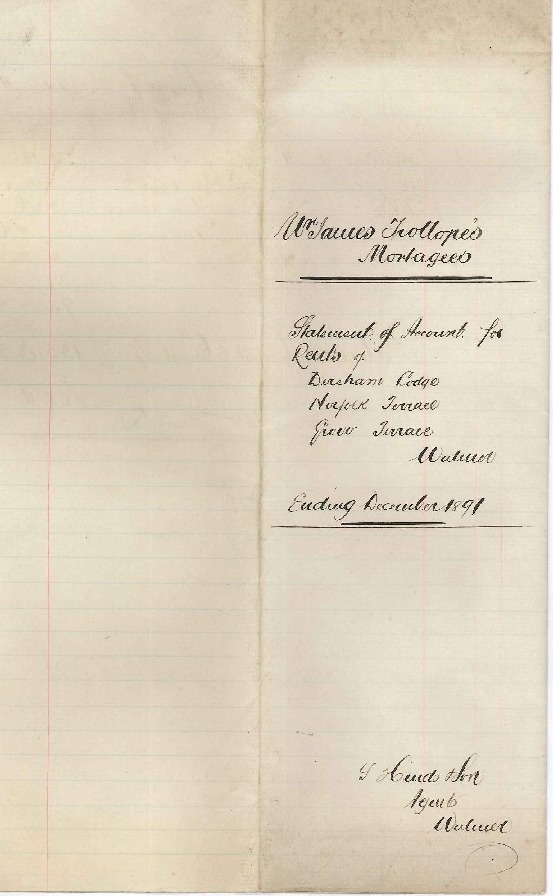 Mr James Trollope's
Mortagees
Statement of Account for
Rents of
Dersham Lodge
Norfolk Terrace
Grove Terrace
Walmer
Ending December 1891
Hind & Son
Agents
Walmer